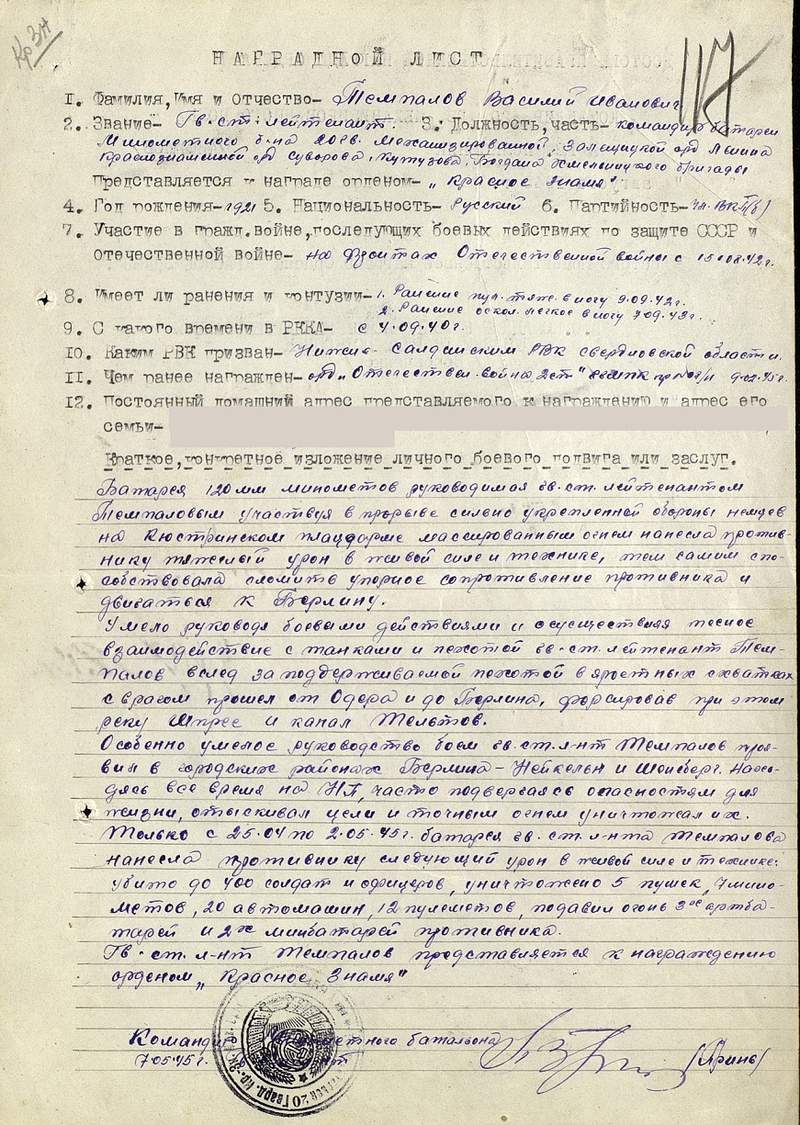 Кр ЗН
117
НАГРАДНОЙ ЛИСТ
1. Фамилия, Имя и Отчество- Темпалов Василий Иванович
2. Звание- Гв. ст. лейтенант. 3. Должность, часть- командир батареи
Минометного б-на 20 гв. механизированной, Залещицкой орд Ленина
Краснознаменной орд Суворова, Кутузова, Богдана Хмельницкого бригады
Представляется к награде орденом- „Красное Знамя"
4. Год рождения- 1921 5. Национальность- Русский 6. Партийность- чл. ВКП(б)
7. Участие в гражд. войне, последующих боевых действиях по защите СССР и
Отечественной войне- на фронтах Отечественной войны с 15.08.42г.
8. Имеет ли ранения и контузии- 1. Ранение пул. тяж. в ногу 9.09.42г.
2. Ранение оскол. легкое в ногу 7.09.43г.
9. С какого времени в РККА- с 4.09.40г.
10. Каким РВК призван- Нижне-Салдинским РВК свердловской области.
11. Чем ранее награжден- орд „Отечествен. война 2ст" 9.02.45г.
12. Постоянный домашний адрес представляемого к награждению и адрес его
семьи-
Краткое, конкретное изложение личного боевого подвига или заслуг.
Батарея 120мм минометов руководимая гв. ст. лейтенантом
Темпаловым участвуя в прорыве сильно укрепленной обороны немцев
на Кюстринском плацдарме массированным огнем нанесла против-
нику тяжелый урон в живой силе и технике, тем самим спо-
собствовала сломить упорное сопротивление противника и
двигаться к Берлину.
Умело руководя боевыми действиями и осуществляя тесное
взаимодействие с танками и пехотой гв. ст. лейтенант Тем-
палов вслед за поддерживаемой пехотой в яростных схватках
с врагом прошел от Одера и до Берлина, форсировав при этом
реку Шпрее и канал Тельтов.
Особенно умелое руководство боем гв. ст. л-нт Темпалов проя-
вил в городских районах Берлина - Нейкельн и Шенберг. Нахо-
дясь все время на НП, часто подвергаясь опасностям для
жизни, отыскивал цели и точным огнем уничтожал их.
Только с 25.04 по 2.05.45г. батарея гв. ст. л-нта Темпалова
нанесла противнику следующий урон в живой силе и технике:
убито до 400 солдат и офицеров, уничтожено 5 пушек, 7 мино-
метов, 20 автомашин, 12 пулеметов, подавил огонь 3ох артба-
тарей и 2х минбатарей противника.
Гв. ст. л-нт Темпалов представляется к награждению
орденом „Красное Знамя"
Командир Минометного батальона
7.05.45г. (Яринь)